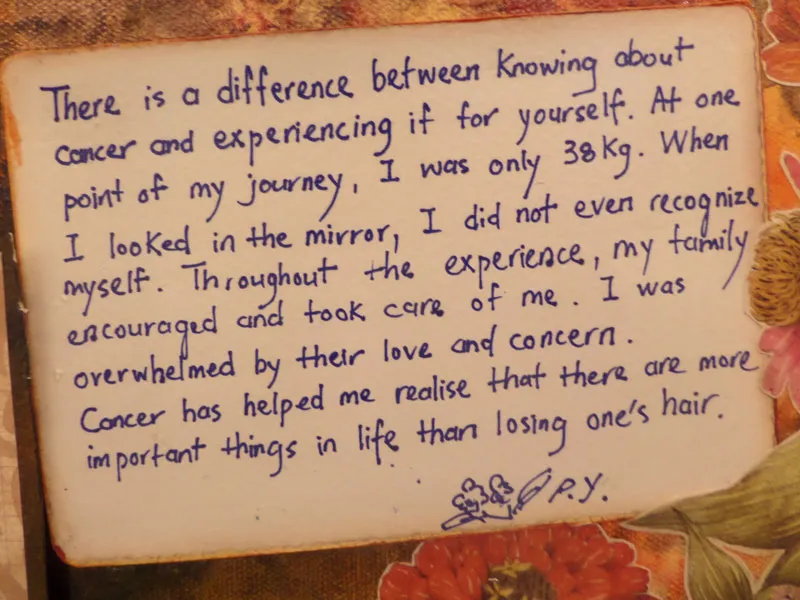 There is a difference between knowing about
cancer and experiencing it for yourself. At one
point of my journey, I was only 38kg. When
I looked in the mirror, I did not even recognize
myself. Throughout the experience, my family
encouraged and took care of me. I was
overwhelmed by their love and concern.
Cancer has helped me realise that there are more
important things in life than losing one's hair.
P.Y.